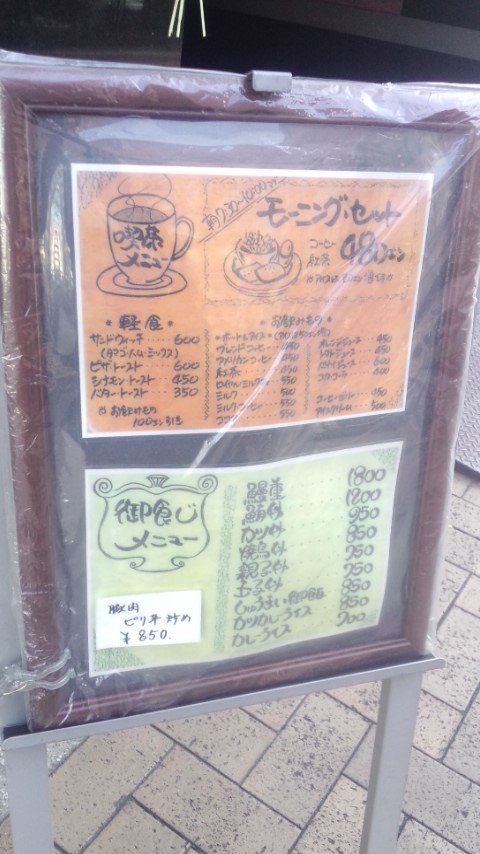 喫茶
メニュー
朝7:30~10:00
モーニング・セット
コーヒー
紅茶
480エン
* 軽食 *
サンドウィッチ 600
(タマゴ・ハム・ミックス)
ピザトースト 600
シナモントースト 450
バタートースト 350
お飲みもの
100エン引き
* お飲みもの *
ブレンドコーヒー
アメリカンコーヒー 450
紅茶 450
ロイヤルミルクティー 550
ミルク 500
ミルクコーヒー 550
ココア
オレンジジュース 450
トマトジュース 450
コーラ 400
コーヒーゼリー 450
アイスクリーム 500
御食じ
メニュー
鰻重 1800
鮪丼 1200
カツ丼 950
焼鳥丼 850
親子丼 750
玉子丼 750
しゅうまい御飯 850
カツカレーライス 850
カレーライス 700
豚肉
ピリ辛炒め
¥850.